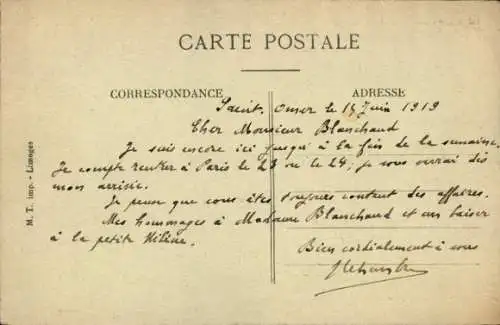 CARTE POSTALE
CORRESPONDANCE
ADRESSE
Saint-Omer le 15 Juin 1919
Cher Monsieur Blanchaud
Je suis encore ici jusqu'à la fin de la semaine.
Je compte rentrer à Paris le 23 ou le 24, je vous verrai dès
mon arrivée.
Je pense que vous êtes toujours content des affaires.
Mes hommages à Madame Blanchaud et un baiser
à la petite Hélène.
Bien cordialement à vous
M. T. imp. - Limoges